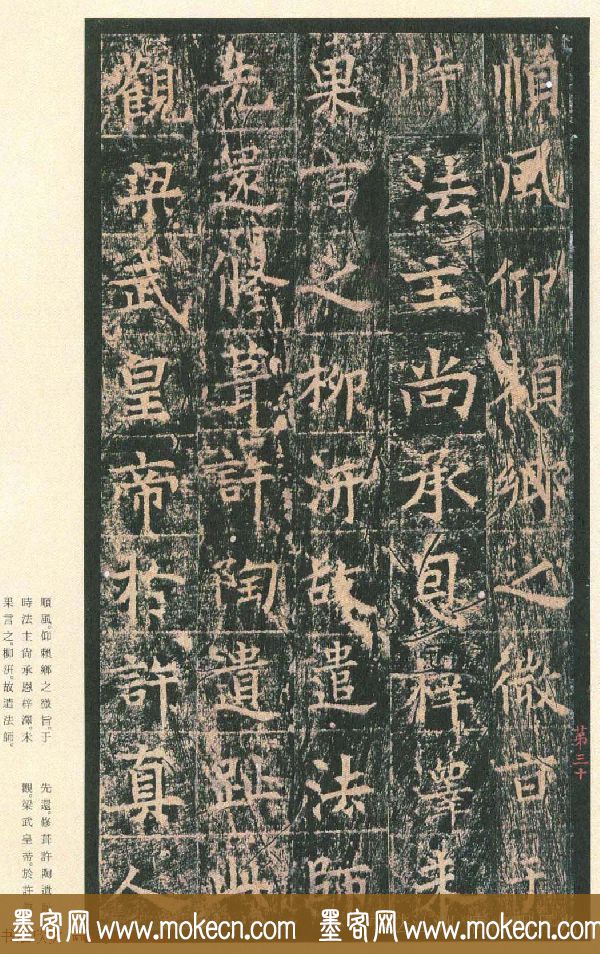 順風仰賴鄉之微旨于
時法主尚承恩梓澤未
果言之柳汧故遣法師
先還修葺許陶遺趾此
觀梁武皇帝於許真人
第三十
順風。仰賴鄉之微旨。于
時法主尚承恩梓澤。未
果言之。柳汧。故遣法師。
先還。修葺許陶遺
觀。梁武皇帝。於許
墨客网 www.mokecn.com 墨客网 www.mokecn.com